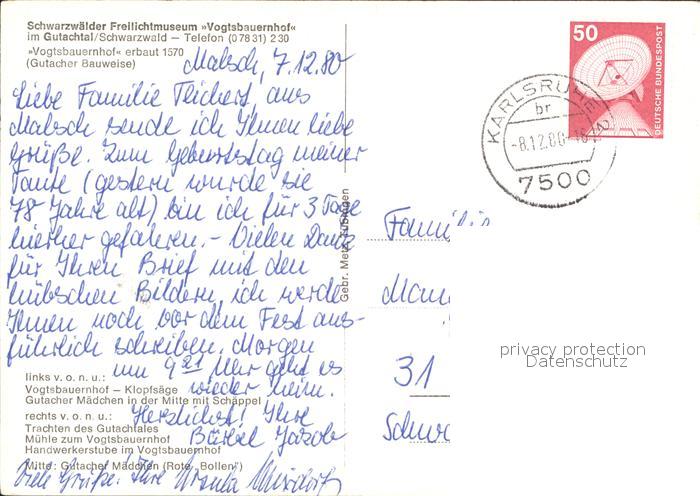 Schwarzwälder Freilichtmuseum »Vogtsbauernhof«
im Gutachtal/Schwarzwald — Telefon (0 78 31) 2 30
»Vogtsbauernhof« erbaut 1570
(Gutacher Bauweise)
Malsch, 7.12.80
Liebe Familie Teichert, aus
Malsch sende ich Ihnen liebe
Grüße. Zum Geburtstag meiner
Tante (gestern wurde sie
78 Jahre alt) bin ich für 3 Tage
hierher gefahren. – Vielen Dank
für Ihren Brief mit den
hübschen Bildern, ich werde
Ihnen noch vor dem Fest aus-
führlich schreiben. Morgen
um 9 21 Uhr geht es
wieder heim.
Herzlichst! Ihre
Bärbel
links v. o. n. u.:
Vogtsbauernhof — Klopfsäge
Gutacher Mädchen in der Mitte mit Schäppel
rechts v. o. n. u.:
Trachten des Gutachtales
Mühle zum Vogtsbauernhof
Handwerkerstube im Vogtsbauernhof
Mitte: Gutacher Mädchen (Rote „Bollen")
Viele Grüße! Ihre Ursula
Gebr. Metz, Tübingen
50
DEUTSCHE BUNDESPOST
KARLSRUHE
br
-8.12.80-16
7500
31
privacy protection
Datenschutz